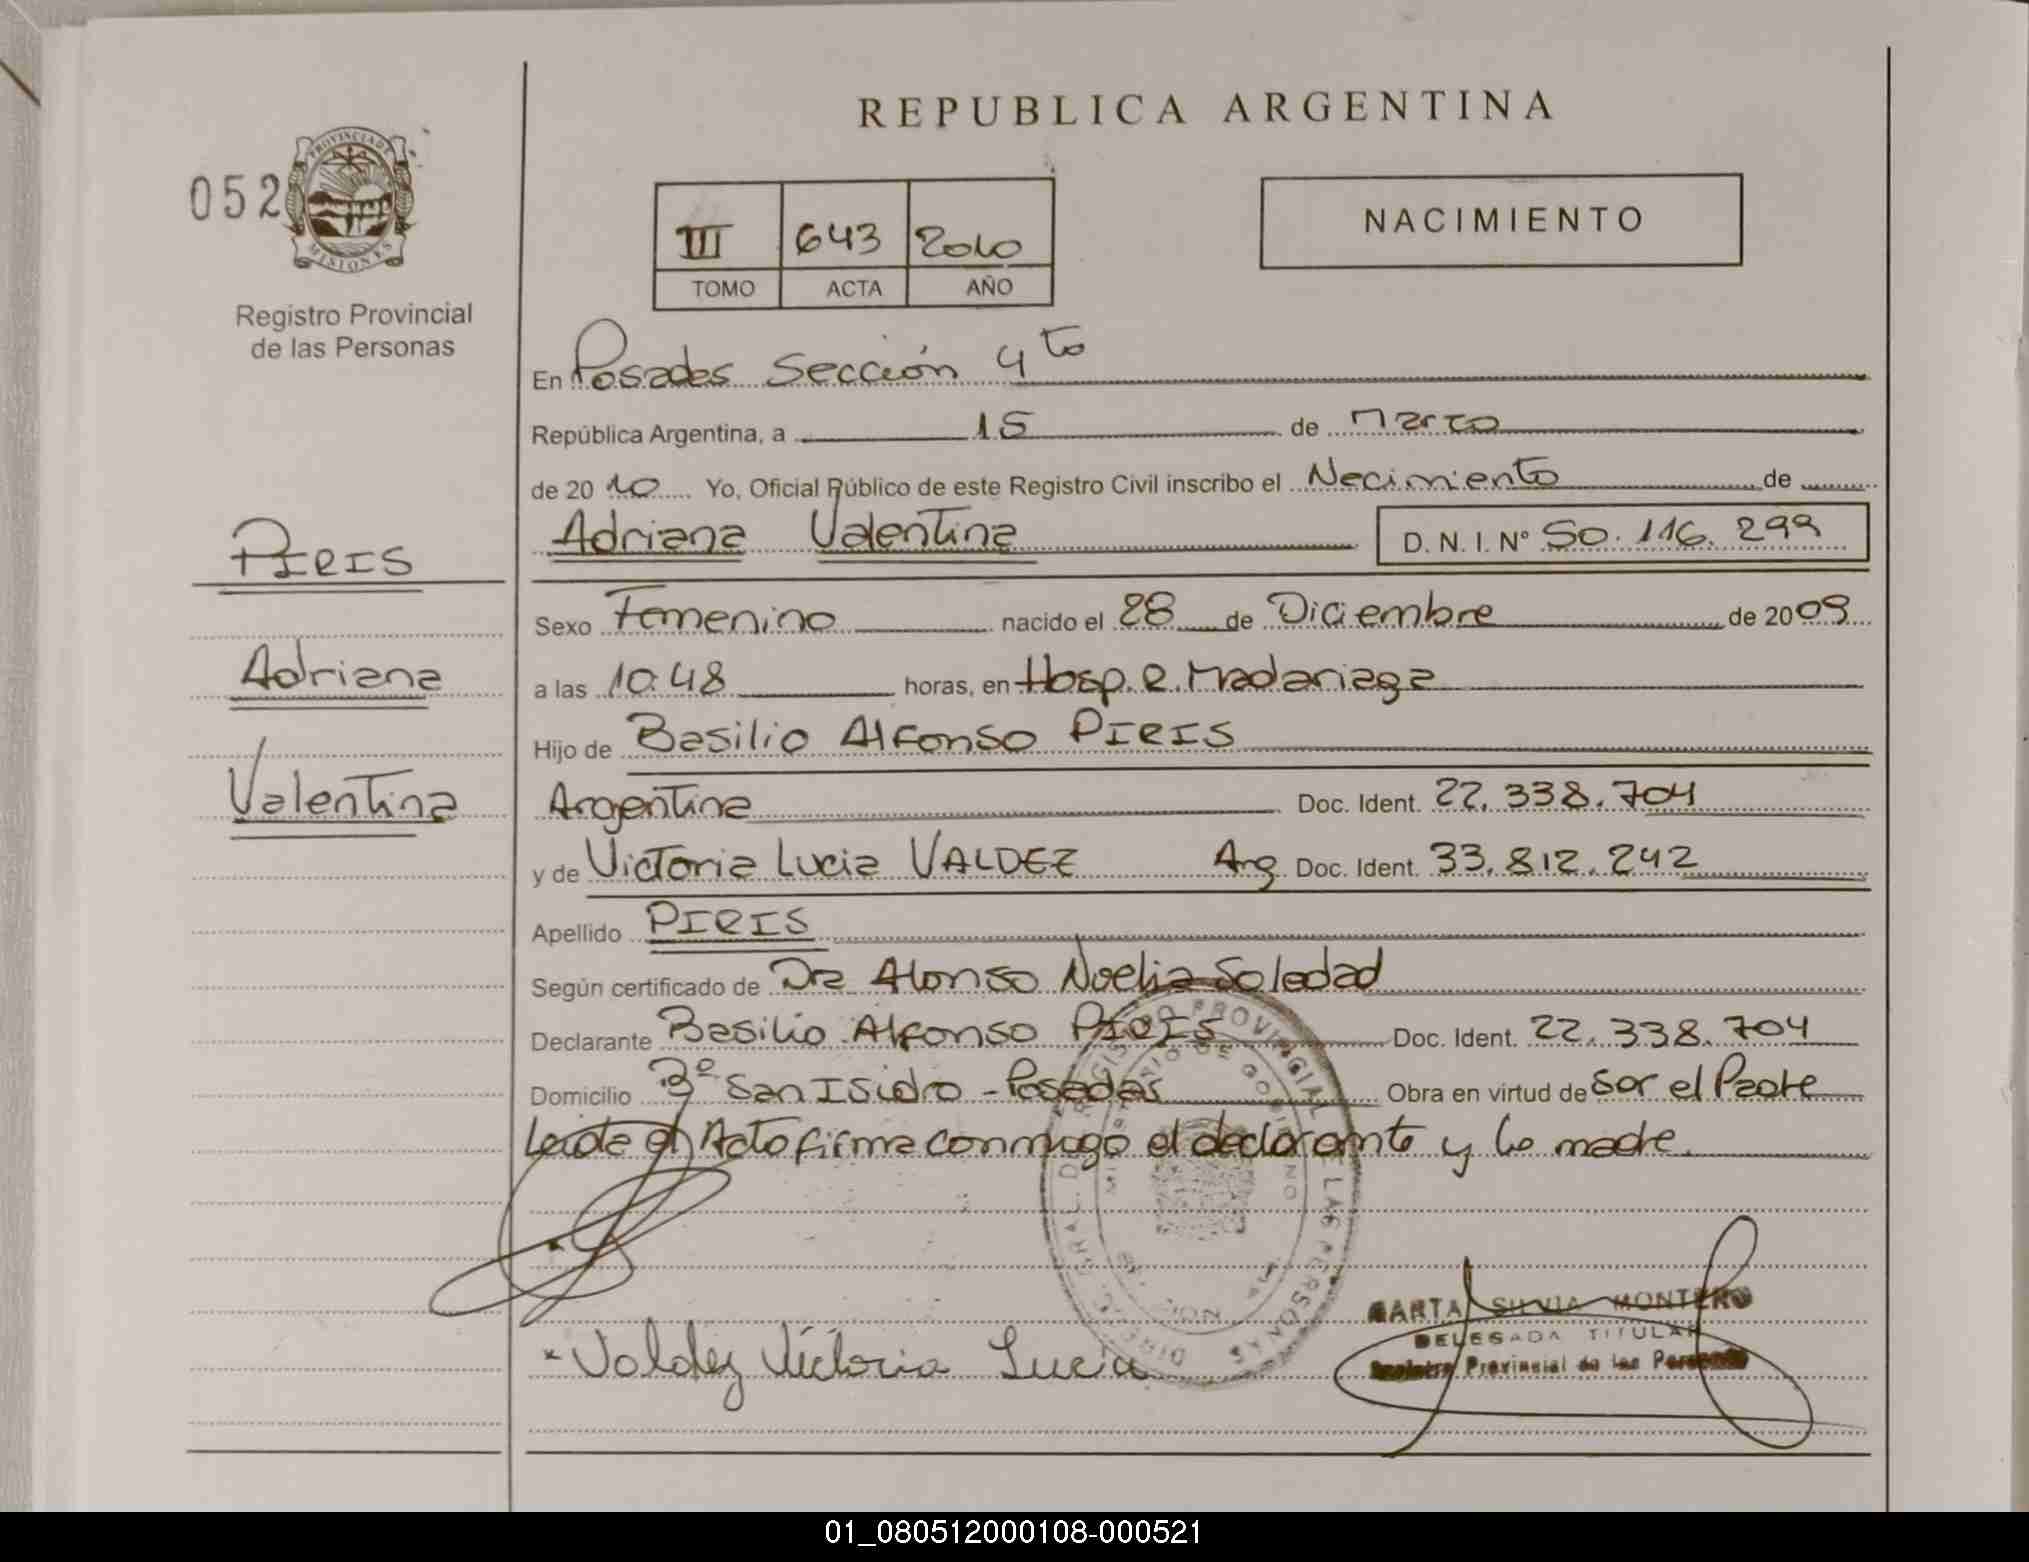 REPUBLICA ARGENTINA
052
PROVINCIA DE
MISIONES
Registro Provincial
de las Personas
III 643 2010
TOMO ACTA AÑO
NACIMIENTO
En Posadas Sección 4 to
República Argentina, a 15 de Marzo
de 20 10 Yo, Oficial Público de este Registro Civil inscribo el Nacimiento de
Adriana Valentina D. N. I. N° 50.116.299
PIRIS
Adriana
Valentina
Sexo Femenino nacido el 28 de Diciembre de 2009
a las 10:48 horas, en Hosp. R. Madariaga
Hijo de Basilio Alfonso PIRIS
Argentina Doc. Ident. 22.338.704
y de Victoria Lucia VALDEZ Arg Doc. Ident. 33.812.242
Apellido PIRIS
Según certificado de Dra Alonso Noelia Soledad
Declarante Basilio Alfonso PIRIS Doc. Ident. 22.338.704
Domicilio B° San Isidro - Posadas Obra en virtud de Ser el Padre
Leida el Acta firma conmigo el declarante y la madre.
REGISTRO PROVINCIAL DE LAS PERSONAS
MINISTERIO DE GOBIERNO
MARTA SILVIA MONTERO
DELEGADA TITULAR
Registro Provincial de las Personas
* Valdez Victoria Lucia
01_080512000108-000521